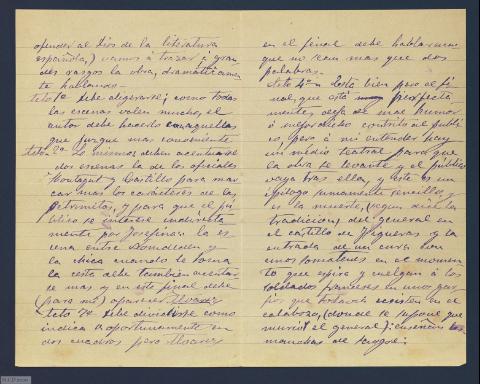 ofender al Dios de la literatura
española,) vamos á trazar á gran
des rasgos la obra, dramáticamen
te hablando.
Acto 1º debe aligerarse; como todas
las escenas valen mucho, el
autor debe hacerlo en aquellas
que juzgue mas conveniente.
Acto. 2º Lo mismo; deben acentuarse
dos escenas la de los oficiales
Montagut y Castillo para mar
car mas los carácteres de las
y para que el pú
blico se interese indirecta
mente por Josefina: la es
cena entre y
la chica cuando le toma
la cesta debe tambien acentuar
se mas y en este final debe
(para mi) aparecer Alvarez
Acto 3º debe dividirse como
indica oportunamente en
dos cuadros pero Alvarez
en el final debe hablar aun
que no sean mas que dos
palabras.
Acto 4º Está bien pero el fi
nal, que está perfecta
mente, deja de mal humor
ó mejor dicho contrito al públi
co, pero á mi entender hay
un medio teatral para que
la obra se levante y el público
vaya tras ella, y este es un
epílogo sumamente sencillo y
es la muerte, (segun dice la
tradicion) del general en
el castillo de Figueras y la
entrada de un cura con
unos somatenes en el momen
to que espira y cuelgan á los
soldados franceses en unos gar
fios que todavia existen en el
calabozo, (donde se supone que
murió el general) enseñan
manchas de sangre.